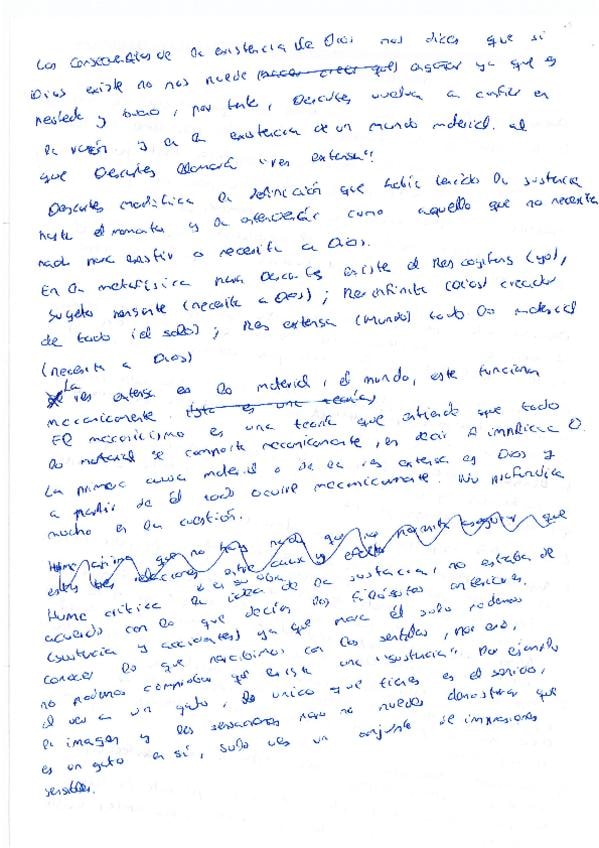 Las consecuencias de la existencia de Dios nos dicen que si
Dios existe no nos puede (hacer creer que) engañar ya que es
perfecto y bueno, por tanto, Descartes vuelve a confiar en
la razón y en la existencia de un mundo material. al
que Descartes llamará "res extensa".
Descartes modifica la definición que había tenido la sustancia
hasta el momento y la entenderán como aquello que no necesita
nada para existir o necesita a Dios.
En la metafísica para Descartes existe el Res cogitans (yo),
sujeto pensante (necesita a Dios); Res infinita (Dios) creador
de todo (él solo); Res extensa (mundo) todo lo material
(necesita a Dios)
La res extensa es lo material, el mundo, este funciona
mecanicamente. (esta es una teoría)
El mecanicismo es una teoría que entiende que todo
lo material se comporta mecanicamente, es decir A implica a B.
La primera causa material o de la res extensa es Dios y
a partir de él todo ocurre mecanicamente. No profundiza
mucho en la cuestión.
Hume afirma que no hay nada que nos permita asegurar que
estas relaciones entre causa y efecto
Hume critica la idea de la sustancia, no estaba de
acuerdo con lo que decían los filósofos anteriores.
(sustancia y accidentes) ya que para él solo podemos
conocer lo que percibimos con los sentidos, por eso,
no podemos comprobar que exista una "sustancia". Por ejemplo
al ver a un gato, lo único que tienes es el sonido,
la imagen y las sensaciones pero no puedes demostrar que
es un gato en sí, solo ves un conjunto de impresiones
sensibles.